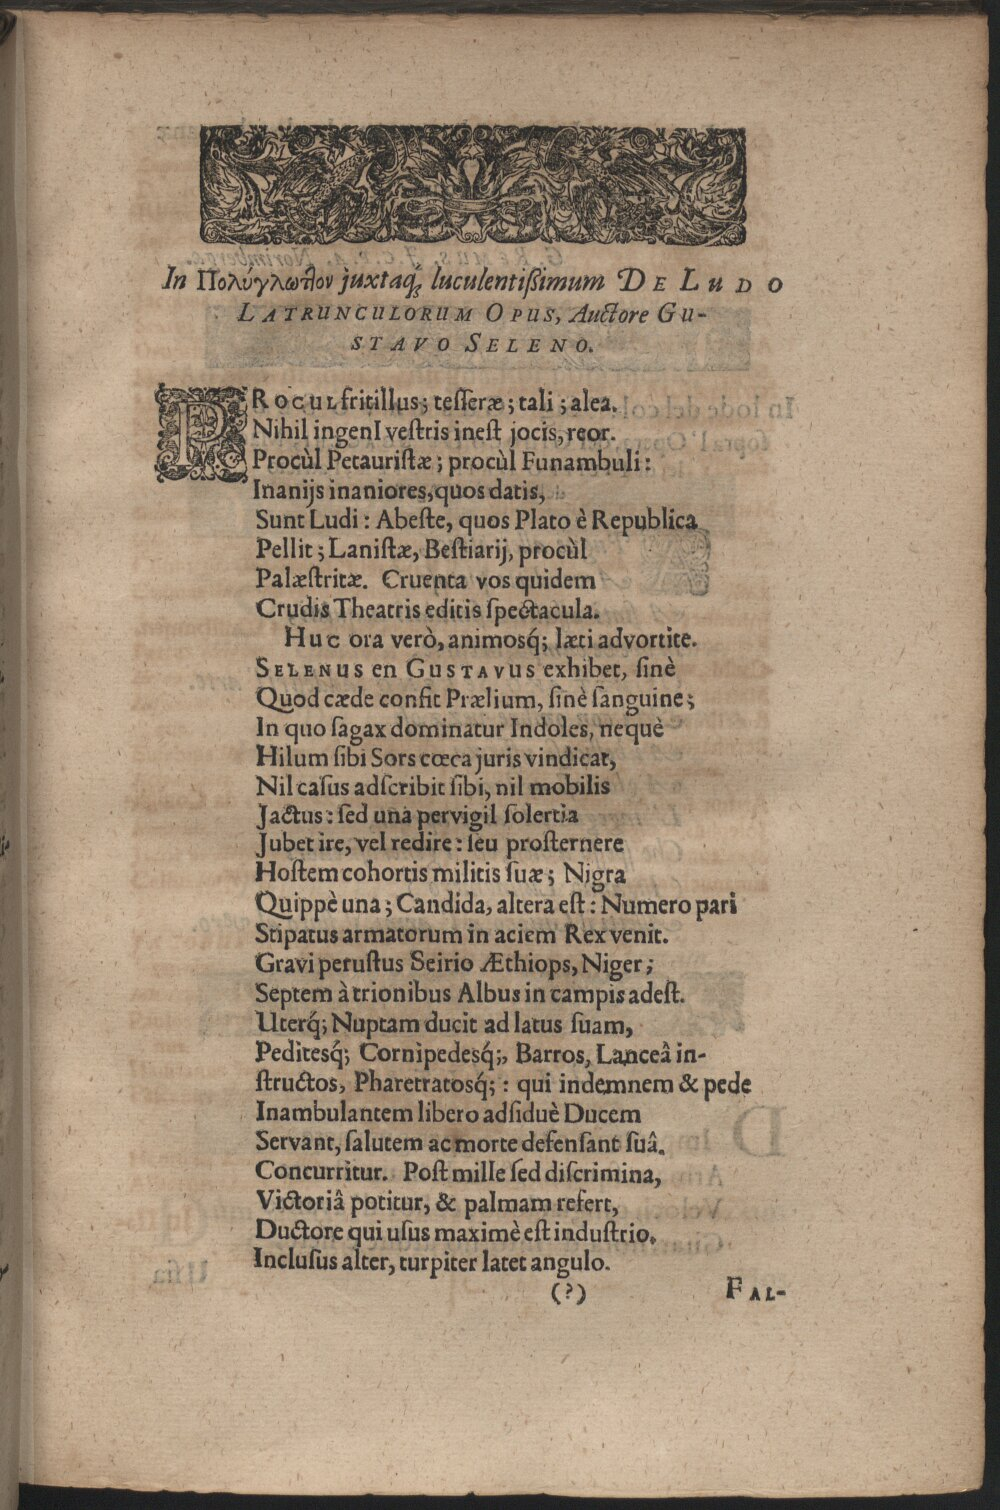 In Πολύγλωτ̃ον juxtaq́; luculentißimum DE LuDO
LATRUNCULORUM OPUS, Auctore GU-
STAVO SELENO.
PROCUL fritillus; teſſeræ; tali; alea.
Nihil ingenI veſtris ineſt jocis, reor.
Procùl Petauriſtæ; procùl Funambuli:
Inanijs inaniores, quos datis,
Sunt Ludi: Abeſte, quos Plato è Republica
Pellit; Laniſtæ, Beſtiarij, procùl
Palæſtritæ. Cruenta vos quidem
Crudis Theatris editis ſpectacula.
HUC ora verò, animosq́; læti advortite.
SELENUS en GUSTAVUS exhibet, ſinè
Quod cæde confit Prælium, ſinè ſanguine;
In quo ſagax dominatur Indoles, nequè
Hilum ſibi Sors cœca juris vindicat,
Nil caſus adſcribit ſibi, nil mobilis
Jactus: ſed una pervigil ſolertia
Jubet ire, vel redire: ſeu proſternere
Hoſtem cohortis militis ſuæ; Nigra
Quippè una; Candida, altera eſt: Numero pari
Stipatus armatorum in aciem Rex venit.
Gravi peruſtus Seirio Æthiops, Niger;
Septem à trionibus Albus in campis adeſt.
Uterq́; Nuptam ducit ad latus ſuam,
Peditesq́; Cornipedesq́;, Barros, Lanceâ in-
ſtructos, Pharetratosq́;: qui indemnem & pede
Inambulantem libero adſiduè Ducem
Servant, ſalutem ac morte defenſant ſuâ.
Concurritur. Poſt mille ſed diſcrimina,
Victoriâ potitur, & palmam refert,
Ductore qui uſus maximè eſt induſtrio.
Incluſus alter, turpiter latet angulo.
(?) FAL-